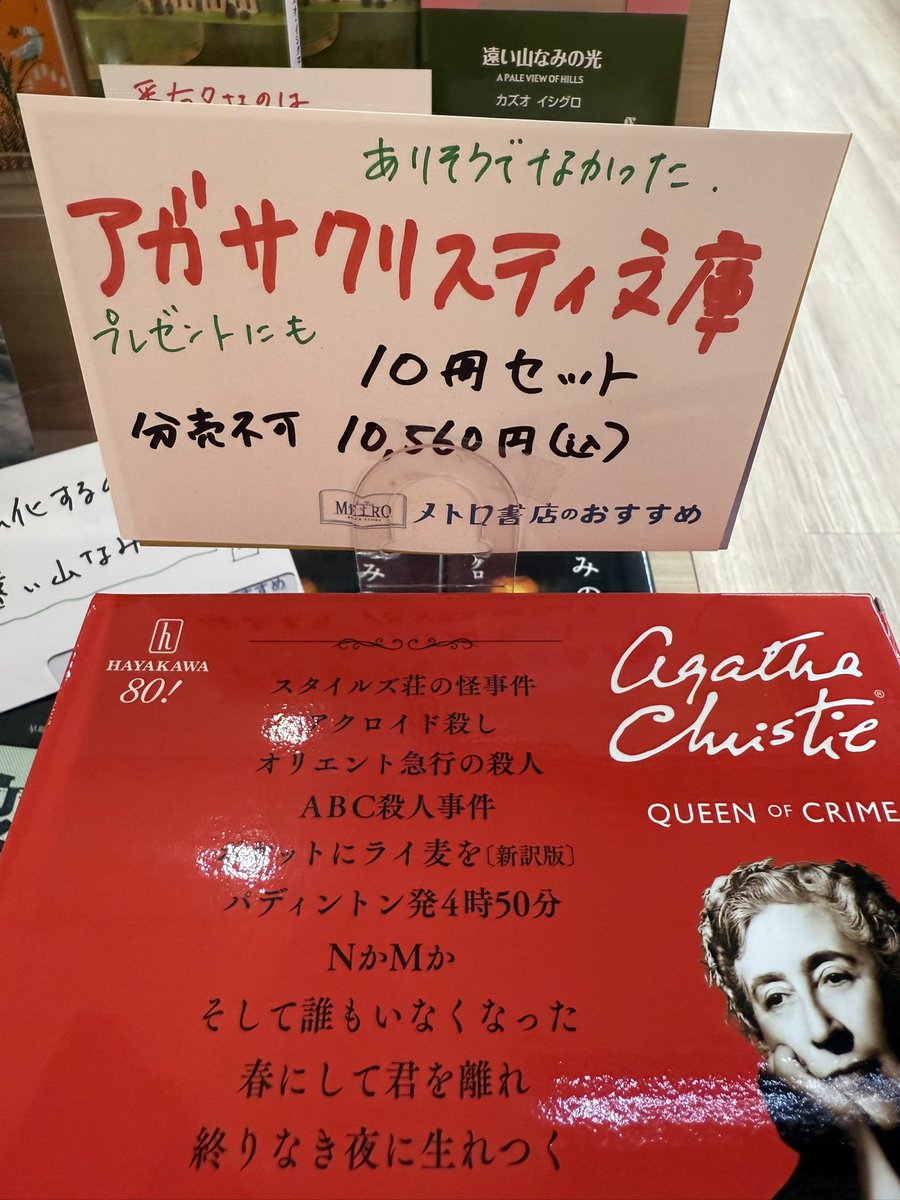 遠い山なみの光
A PALE VIEW OF HILLS
カズオ イシグロ
ありそうでなかった.
アガサクリスティ文庫
プレゼントにも
10冊セット
分売不可 10,560円(込)
METRO
メトロ書店のおすすめ
化する
い山なみ
すすめ
み
ケロ
みの
h
HAYAKAWA
80!
スタイルズ荘の怪事件
アクロイド殺し
オリエント急行の殺人
ABC殺人事件
ポケットにライ麦を〔新訳版〕
パディントン発4時50分
NかMか
そして誰もいなくなった
春にして君を離れ
終りなき夜に生れつく
Agatha
Christie®
QUEEN OF CRIME